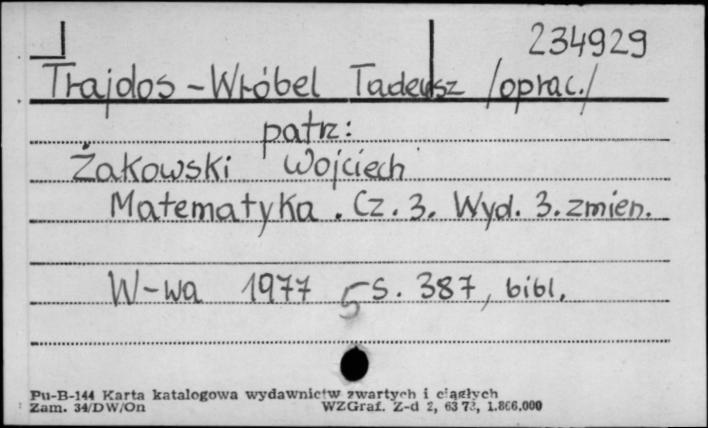 234929
Trajdos-Wróbel Tadeusz /oprac./
patrz:
Żakowski Wojciech
Matematyka. Cz. 3. Wyd. 3. zmien.
W-wa 1977 5 S. 387, bibl.
Pu-B-144 Karta katalogowa wydawnictw zwartych i ciągłych
Zam. 34/DW/On WZGraf. Z-d 2, 63 73, 1.866.000